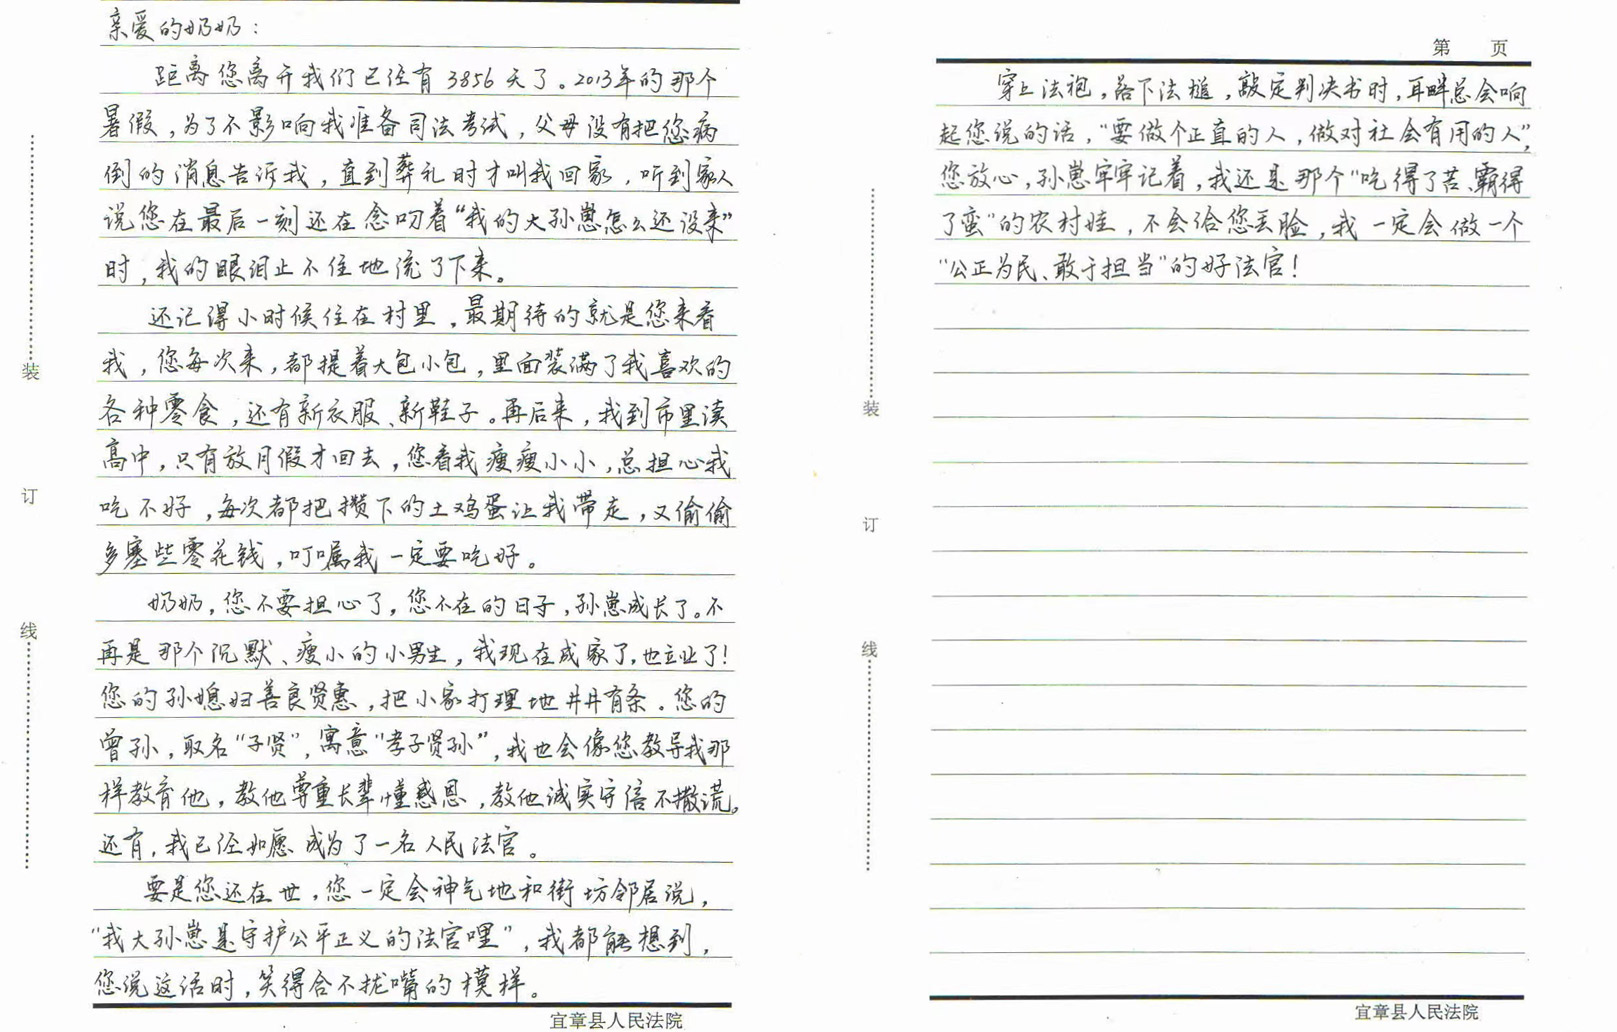 亲爱的奶奶：
距离您离开我们已经有3856天了。2013年的那个
暑假，为了不影响我准备司法考试，父母没有把您病
倒的消息告诉我，直到葬礼时才叫我回家，听到家人
说您在最后一刻还在念叨着“我的大孙崽怎么还没来”
时，我的眼泪止不住地流了下来。
还记得小时候住在村里，最期待的就是您来看
我，您每次来，都提着大包小包，里面装满了我喜欢的
各种零食，还有新衣服、新鞋子。再后来，我到市里读
高中，只有放月假才回去，您看我瘦瘦小小，总担心我
吃不好，每次都把攒下的土鸡蛋让我带走，又偷偷
多塞些零花钱，叮嘱我一定要吃好。
奶奶，您不要担心了，您不在的日子，孙崽成长了。不
再是那个沉默、瘦小的小男生，我现在成家了，也立业了！
您的孙媳妇善良贤惠，把小家打理地井井有条。您的
曾孙，取名“子贤”，寓意“孝子贤孙”，我也会像您教导我那
样教育他，教他尊重长辈懂感恩，教他诚实守信不撒谎。
还有，我已经如愿成为了一名人民法官。
要是您还在世，您一定会神气地和街坊邻居说，
“我大孙崽是守护公平正义的法官哩”，我都能想到，
您说这话时，笑得合不拢嘴的模样。
宜章县人民法院
装
订
线
第 页
穿上法袍，落下法槌，敲定判决书时，耳畔总会响
起您说的话，“要做个正直的人，做对社会有用的人”，
您放心，孙崽牢牢记着，我还是那个“吃得了苦、霸得
了蛮”的农村娃，不会给您丢脸，我一定会做一个
“公正为民、敢于担当”的好法官！
宜章县人民法院
装
订
线